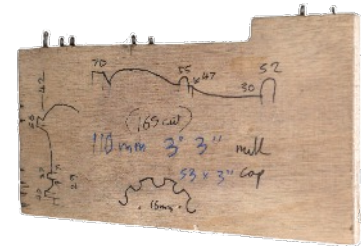 70 55 47 30 52
(165 cut)
110 mm 3" 3" mill
53 x 3" cap
15mm